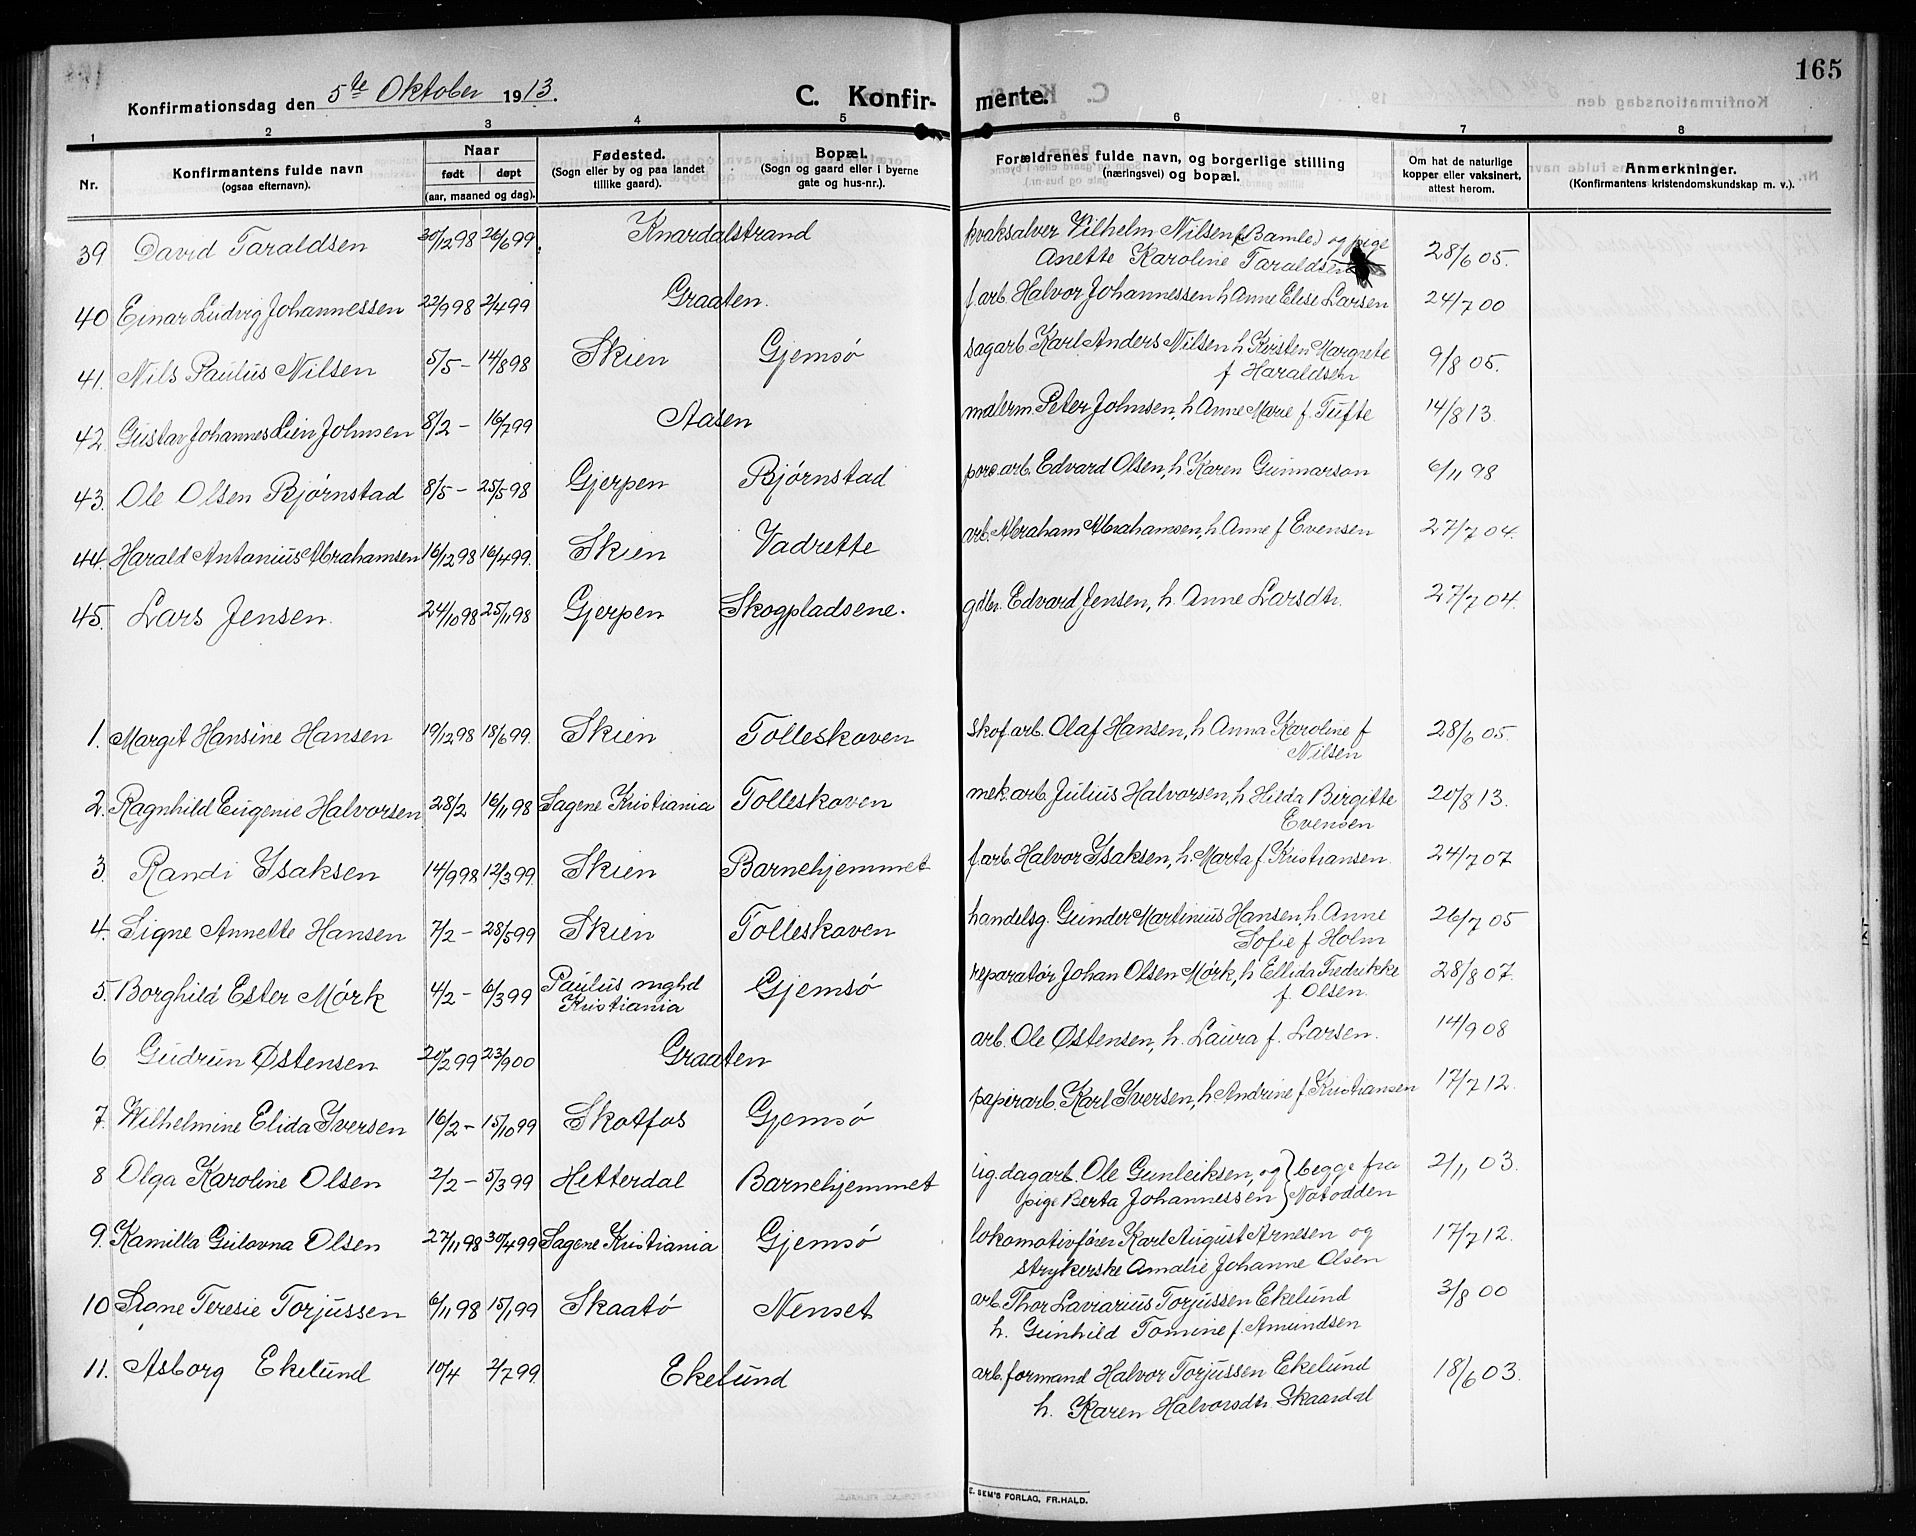 165
Konfirmationsdag den 5te Oktober 1913.
C. Konfir- merte.
1 2 3 4 5 6 7 8
Nr.
Konfirmantens fulde navn
(ogsaa efternavn).
Naar
født døpt
(aar, maaned og dag).
Fødested.
(Sogn eller by og paa landet
tillike gaard).
Bopæl.
(Sogn og gaard eller i byerne
gate og hus-nr.).
Forældrenes fulde navn, og borgerlige stilling
(næringsvei) og bopæl.
Om hat de naturlige
kopper eller vaksinert,
attest herom.
Anmerkninger.
(Konfirmantens kristendomskundskap m. v.).
39 David Taraldsen 30/12 98 26/6 99. Knardalstrand kvaksalver Vilhelm Nilsen (Bamle) og pige 28/6 05.
Anette Karoline Taraldsen
40 Einar Ludvig Johannessen 22/9 98 2/4 99 Graaten. f.arb. Halvor Johannessen h. Anne Elise Larsen 24/7 00
41. Nils Paulus Nilsen 5/5 – 14/8 98 Skien Gjemsø sagarb. Karl Anders Nilsen h. Kirsten Margrete 9/8 05.
f. Haraldsen
42. Gustav Johannes Lien Johnsen 8/2 – 16/7 99 Aasen malerm. Peter Johnsen, h. Anne Marie f. Tufte 14/8 13
43. Ole Olsen Bjørnstad 8/5 – 25/5 98 Gjerpen Bjørnstad porc.arb. Edvard Olsen, h. Karen Gunnarson 6/11 98
44. Harald Antonius Abrahamsen 16/12 98 16/4 99. Skien Vadrette arb. Abraham Abrahamsen, h. Anne f. Evensen 27/7 04.
45. Lars Jensen. 24/10 98 25/11 98 Gjerpen Skogpladsene. gdbr. Edvard Jensen, h. Anne Larsdtr. 27/7 04.
1. Margit Hansine Hansen 19/12 98 18/6 99. Skien Tolleskoven skof.arb. Olaf Hansen, h. Anna Karoline f. 28/6 05.
Nilsen
2. Ragnhild Eugenie Halvorsen 28/2 16/11 98 Sagene Kristiania Tolleskoven mek.arb. Julius Halvorsen, h. Hilda Birgitte 20/8 13.
Evensen
3. Randi Isaksen 14/9 98 12/3 99. Skien Barnehjemmet f.arb. Halvor Isaksen, h. Marta f. Kristiansen. 24/7 07
4. Signe Annette Hansen 7/2 – 28/5 99 Skien Tolleskoven handelsg. Gunder Martinius Hansen, h. Anne 26/7 05
Sofie f. Holm
5. Borghild Ester Mörk 4/2 – 6/3 99 Paulus mghd Gjemsø reparatør Johan Olsen Mörk, h. Ellida Fredrikke 28/8 07.
Kristiania f. Olsen.
6 Gudrun Østensen 20/2 99 23/9 00 Graaten arb. Ole Østensen, h. Laura f. Larsen. 14/9 08
7. Wilhelmine Elida Iversen 16/2 – 15/10 99 Skotfos Gjemsø papirarb. Karl Iversen, h. Andrine f. Kristiansen 17/7 12.
8 Olga Karoline Olsen 2/2 – 5/3 99 Hetterdal Barnehjemmet ug. dagarb. Ole Gunleiksen, og } begge fra 2/11 03.
pige Berta Johannessen } Notodden
9. Kamilla Gulovna Olsen 27/11 98 30/4 99 Sagene Kristiania Gjemsø lokomotivfører Karl August Arnesen og 17/7 12.
strykerske Amalie Johanne Olsen
10 Signe Teresie Torjussen 6/11 98 15/1 99 Skaatö Nenset arb. Thor Torjussen Ekelund 3/8 00
h. Gunhild Tomine f. Amundsen
11. Asborg Ekelund 10/4 2/7 99. Ekelund arb.formand Halvor Torjussen Ekelund 18/6 03.
h. Karen Halvorsdtr. Skaardal
E. SEM'S FORLAG, FR.HALD.